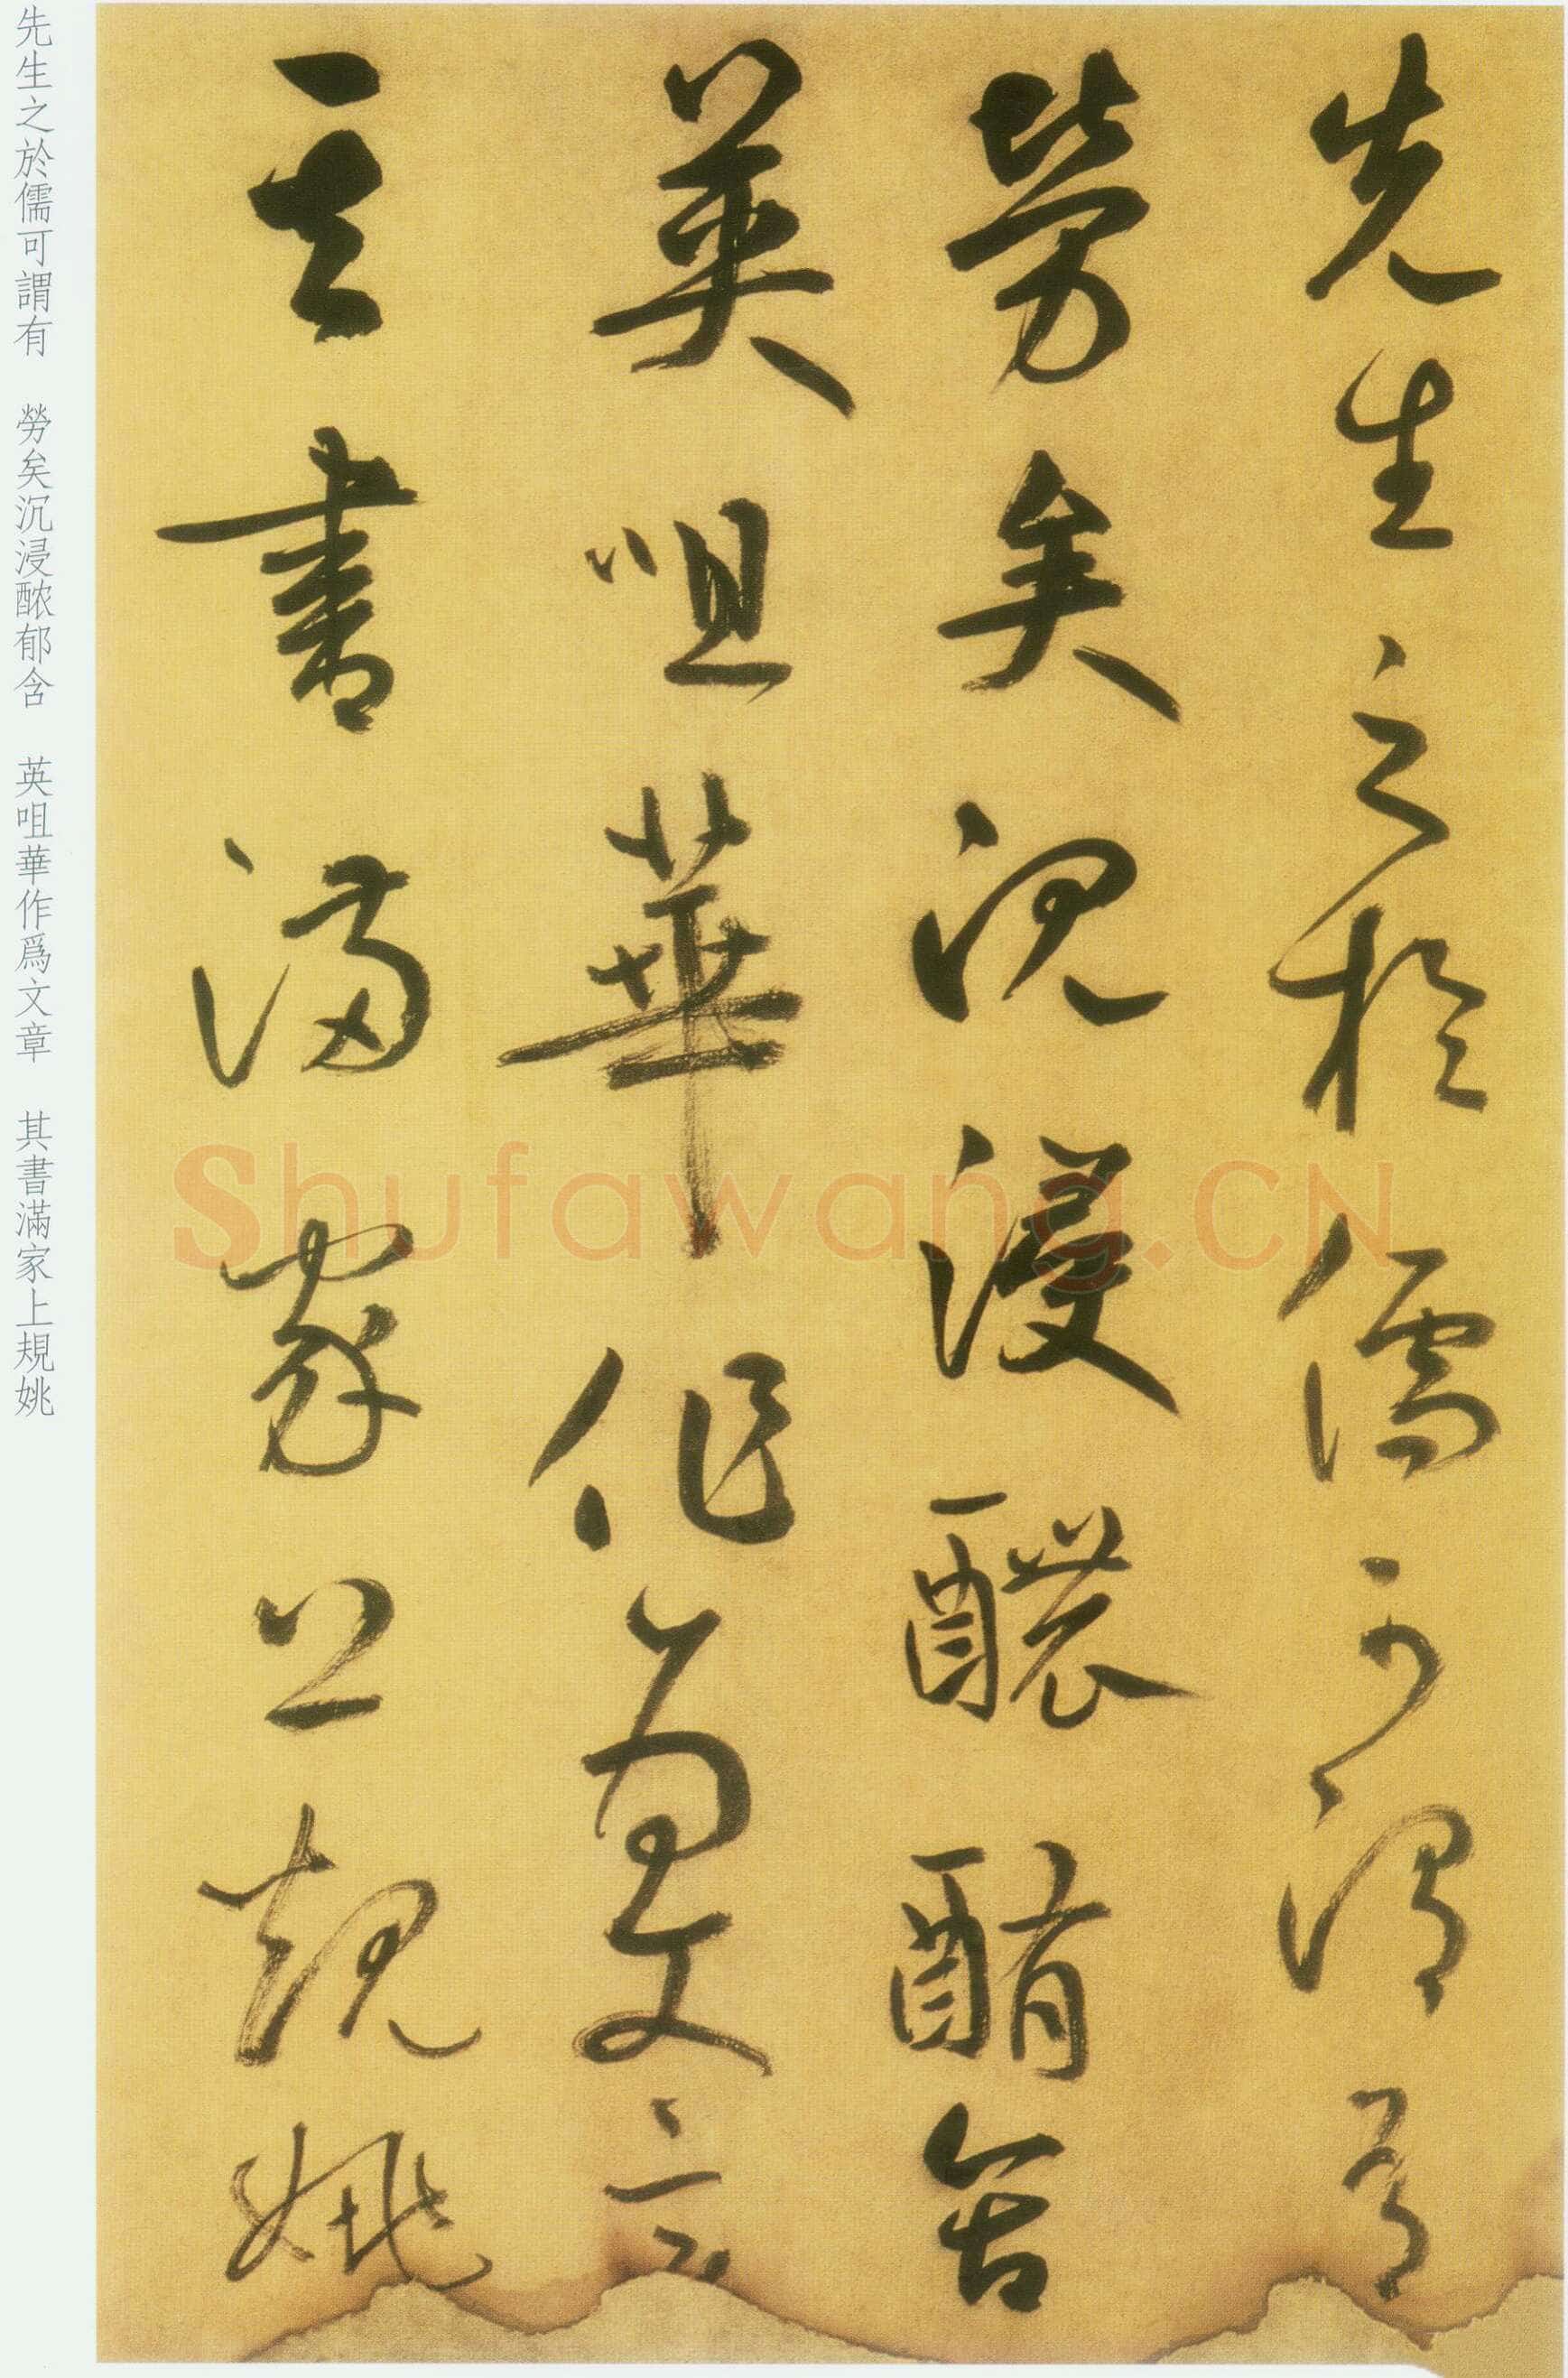 先生之於儒可謂有
勞矣沉浸醲酭含
英咀華作爲文章
其書滿家上規姚
先生之於儒可謂有 勞矣沉浸𬪩郁含 英咀華作爲文章 其書滿家上規姚
Shufawang.CN